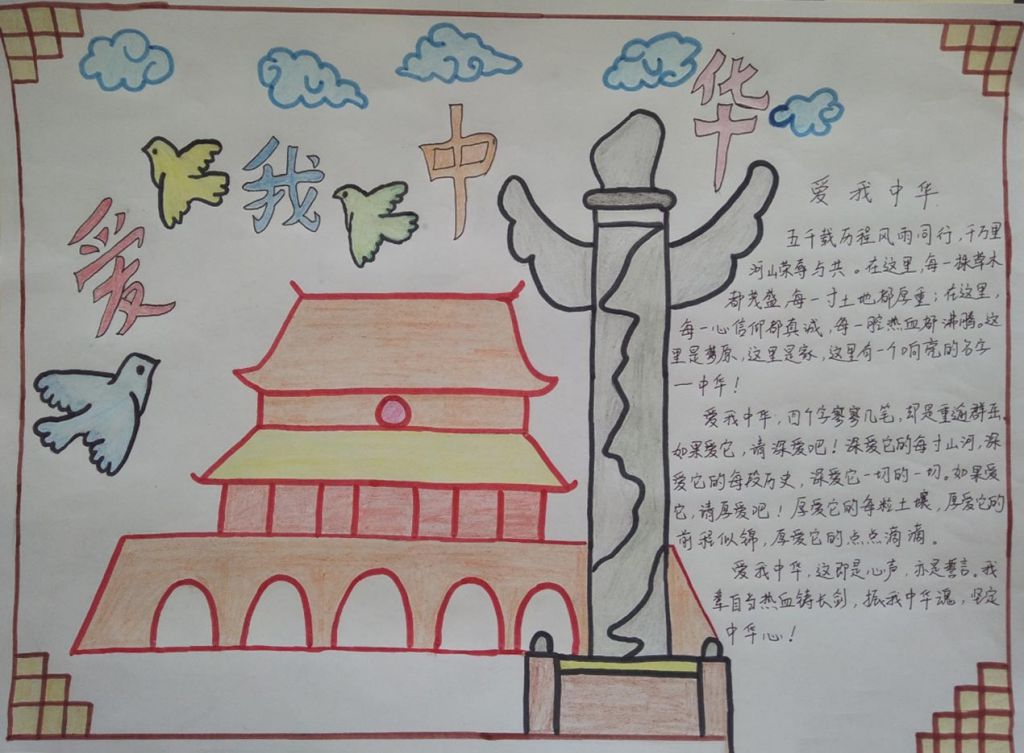 爱我中华
爱我中华
五千载历程风雨同行,千万里
河山荣辱与共。在这里,每一株草木
都茂盛,每一寸土地都厚重;在这里,
每一心信仰都真诚,每一腔热血都沸腾。这
里是梦原,这里是家,这里有一个响亮的名字
—中华!
爱我中华,四个字寥寥几笔,却是重逾群岳。
如果爱它,请深爱吧!深爱它的每寸山河,深
爱它的每段历史,深爱它一切的一切。如果爱
它,请厚爱吧!厚爱它的每粒土壤,厚爱它的
前程似锦,厚爱它的点点滴滴。
爱我中华,这即是心声,亦是誓言。我
辈自当热血铸长剑,振我中华魂,坚定
中华心!